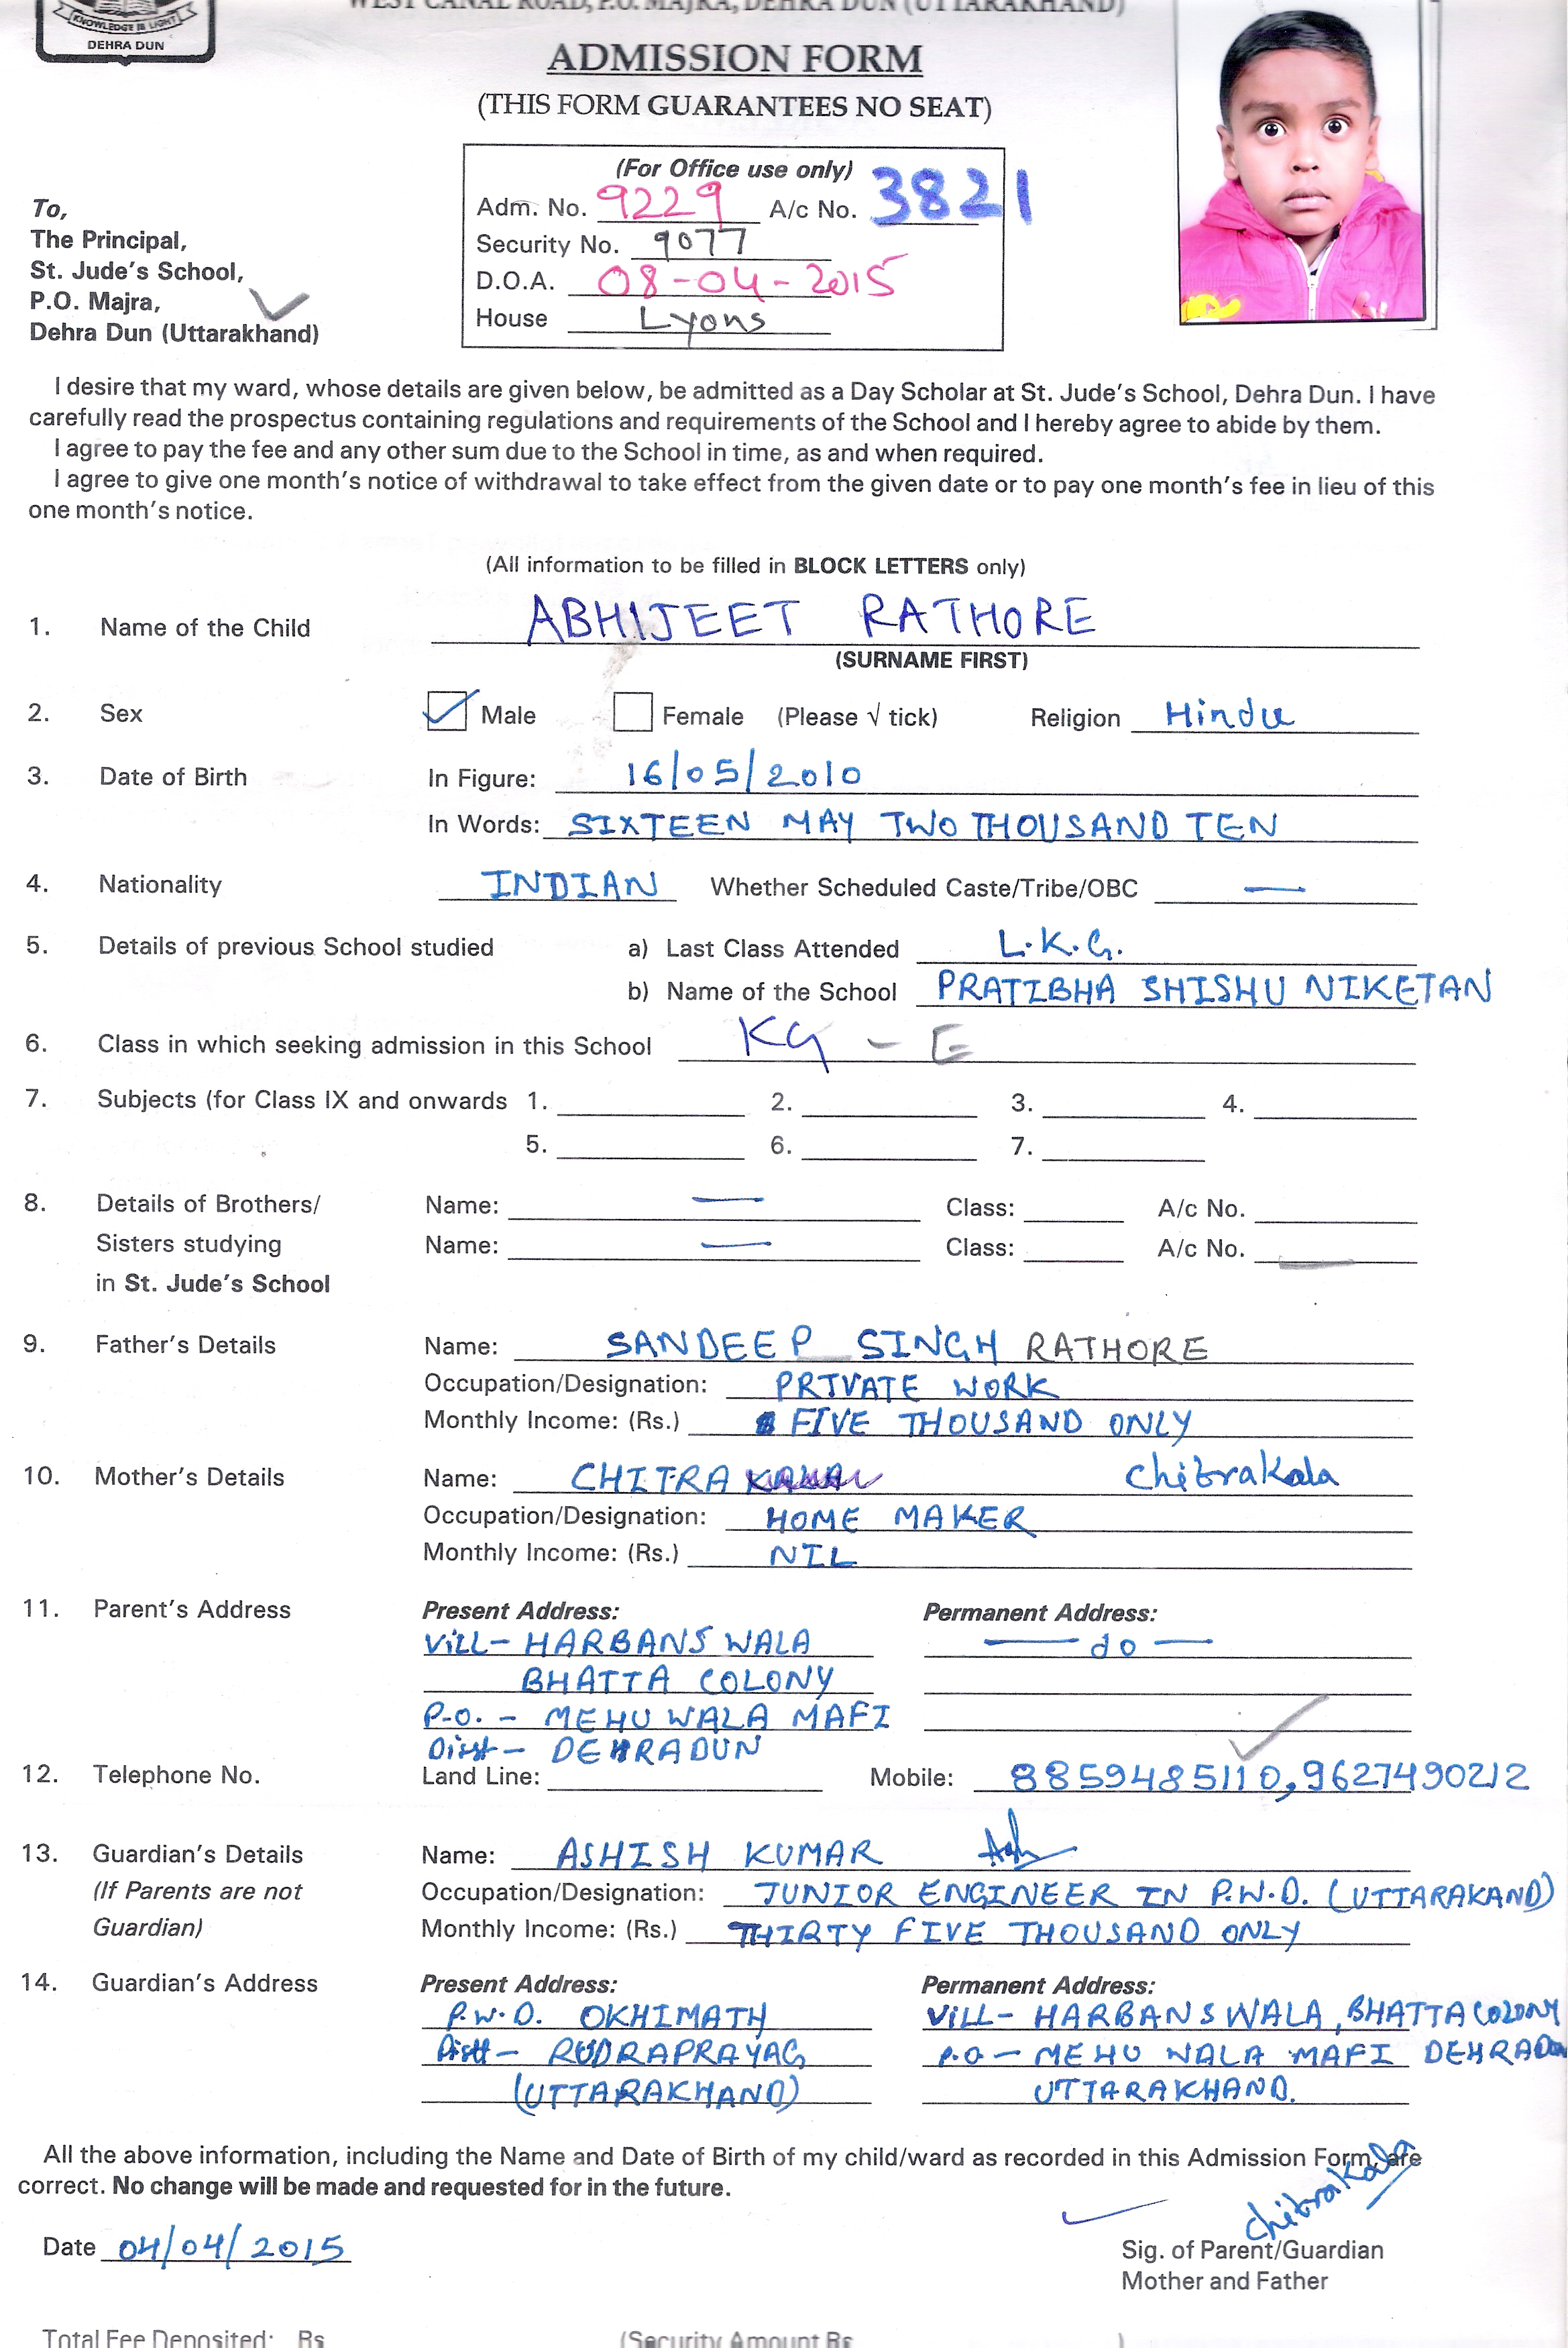 WEST CANAL ROAD, P.O. MAJRA, DEHRA DUN (UTTARAKHAND)
KNOWLEDGE IS LIGHT
DEHRA DUN
ADMISSION FORM
(THIS FORM GUARANTEES NO SEAT)
(For Office use only)
Adm. No. 9229 A/c No. 3821
Security No. 9077
D.O.A. 08-04-2015
House Lyons
To,
The Principal,
St. Jude's School,
P.O. Majra,
Dehra Dun (Uttarakhand)
I desire that my ward, whose details are given below, be admitted as a Day Scholar at St. Jude's School, Dehra Dun. I have
carefully read the prospectus containing regulations and requirements of the School and I hereby agree to abide by them.
I agree to pay the fee and any other sum due to the School in time, as and when required.
I agree to give one month's notice of withdrawal to take effect from the given date or to pay one month's fee in lieu of this
one month's notice.
(All information to be filled in BLOCK LETTERS only)
1. Name of the Child ABHIJEET RATHORE
(SURNAME FIRST)
2. Sex Male Female (Please √ tick) Religion Hindu
3. Date of Birth In Figure: 16/05/2010
In Words: SIXTEEN MAY TWO THOUSAND TEN
4. Nationality INDIAN Whether Scheduled Caste/Tribe/OBC —
5. Details of previous School studied a) Last Class Attended L.K.G.
b) Name of the School PRATIBHA SHISHU NIKETAN
6. Class in which seeking admission in this School KG - E
7. Subjects (for Class IX and onwards 1. 2. 3. 4.
5. 6. 7.
8. Details of Brothers/ Name: — Class: A/c No.
Sisters studying Name: — Class: A/c No.
in St. Jude's School
9. Father's Details Name: SANDEEP SINGH RATHORE
Occupation/Designation: PRIVATE WORK
Monthly Income: (Rs.) FIVE THOUSAND ONLY
10. Mother's Details Name: CHITRA Chitrakala
Occupation/Designation: HOME MAKER
Monthly Income: (Rs.) NIL
11. Parent's Address Present Address: Permanent Address:
Vill- HARBANS WALA — do —
BHATTA COLONY
P.O. - MEHU WALA MAFI
Distt- DEHRADUN
12. Telephone No. Land Line: Mobile: 8859485110, 9627490212
13. Guardian's Details Name: ASHISH KUMAR
(If Parents are not Occupation/Designation: JUNIOR ENGINEER IN P.W.D. (UTTARAKAND)
Guardian) Monthly Income: (Rs.) THIRTY FIVE THOUSAND ONLY
14. Guardian's Address Present Address: Permanent Address:
P.W.D. OKHIMATH Vill- HARBANS WALA, BHATTA COLONY
Distt- RUDRAPRAYAG P.O - MEHU WALA MAFI DEHRADUN
(UTTARAKHAND) UTTARAKHAND.
All the above information, including the Name and Date of Birth of my child/ward as recorded in this Admission Form, are
correct. No change will be made and requested for in the future.
Chitrakala
Date 04/04/2015
Sig. of Parent/Guardian
Mother and Father
Total Fee Deposited: Rs (Security Amount Rs )